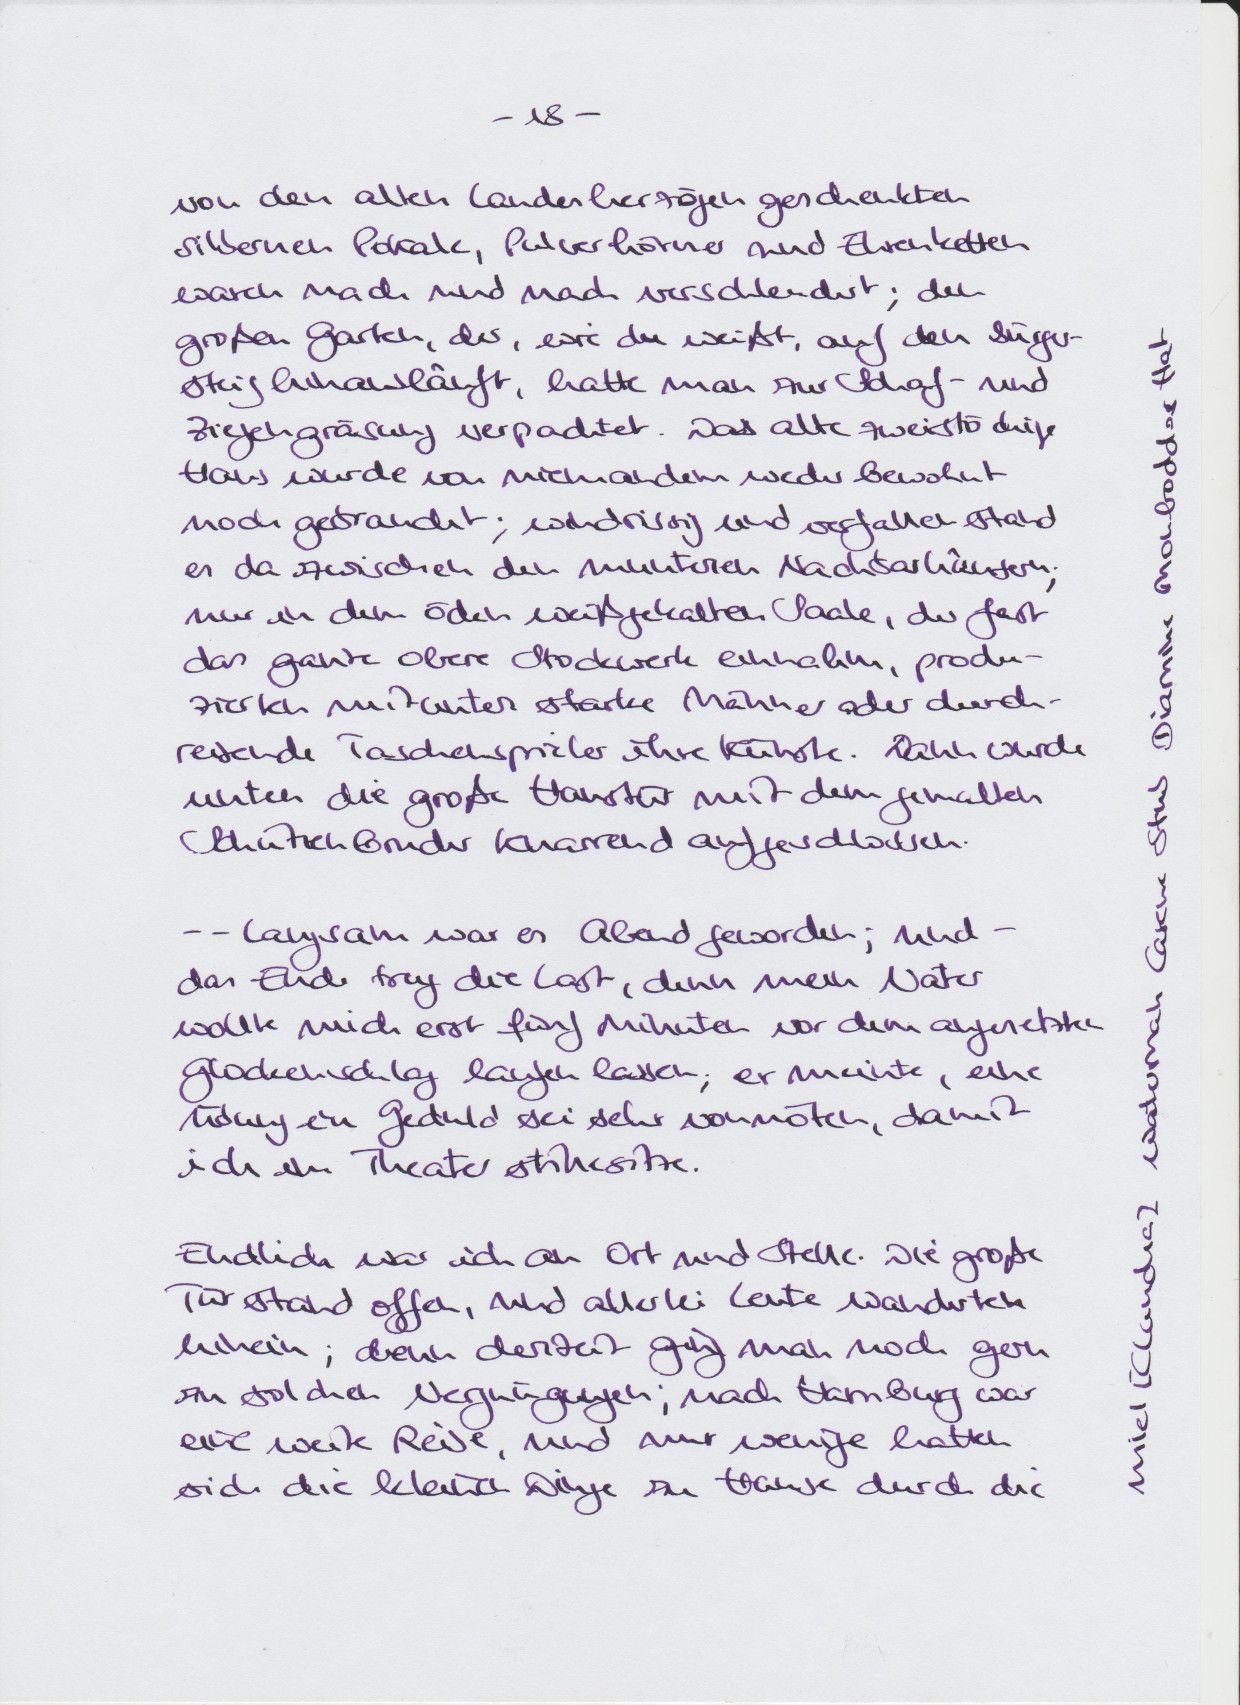 - 18 -
von den alten Landesherzögen geschenkten
silbernen Pokale, Pulverhörner und Ehrenketten
waren nach und nach verschleudert; den
großen Garten, der, wie du weißt, auf den Bürger-
steig hinausläuft, hatte man zur Schaf- und
Ziegengräsung verpachtet. Das alte zweistöckige
Haus wurde von niemandem weder bewohnt
noch gebraucht; windrissig und verfallen stand
es da zwischen den munteren Nachbarhäusern;
nur in dem öden weißgekalkten Saale, der fast
das ganze obere Stockwerk einnahm, produ-
zierten mitunter starke Männer oder durch-
reisende Taschenspieler ihre Künste. Dann wurde
unten die große Haustür mit dem gemalten
Schützenbruder knarrend aufgeschlossen.
-- Langsam war es Abend geworden; und -
das Ende trug die Last, denn mein Vater
wollte mich erst fünf Minuten vor dem angesetzten
Glockenschlag laufen lassen; er meinte, eine
Übung in Geduld sei sehr vonnöten, damit
ich im Theater stillesitze.
Endlich war ich an Ort und Stelle. Die große
Tür stand offen, und allerlei Leute wanderten
hinein; denn derzeit ging man noch gern
zu solchen Vergnügungen; nach Hamburg war
eine weite Reise, und nur wenige hatten
sich die kleinen Dinge zu Hause durch die
Diamine monboddoe Hat